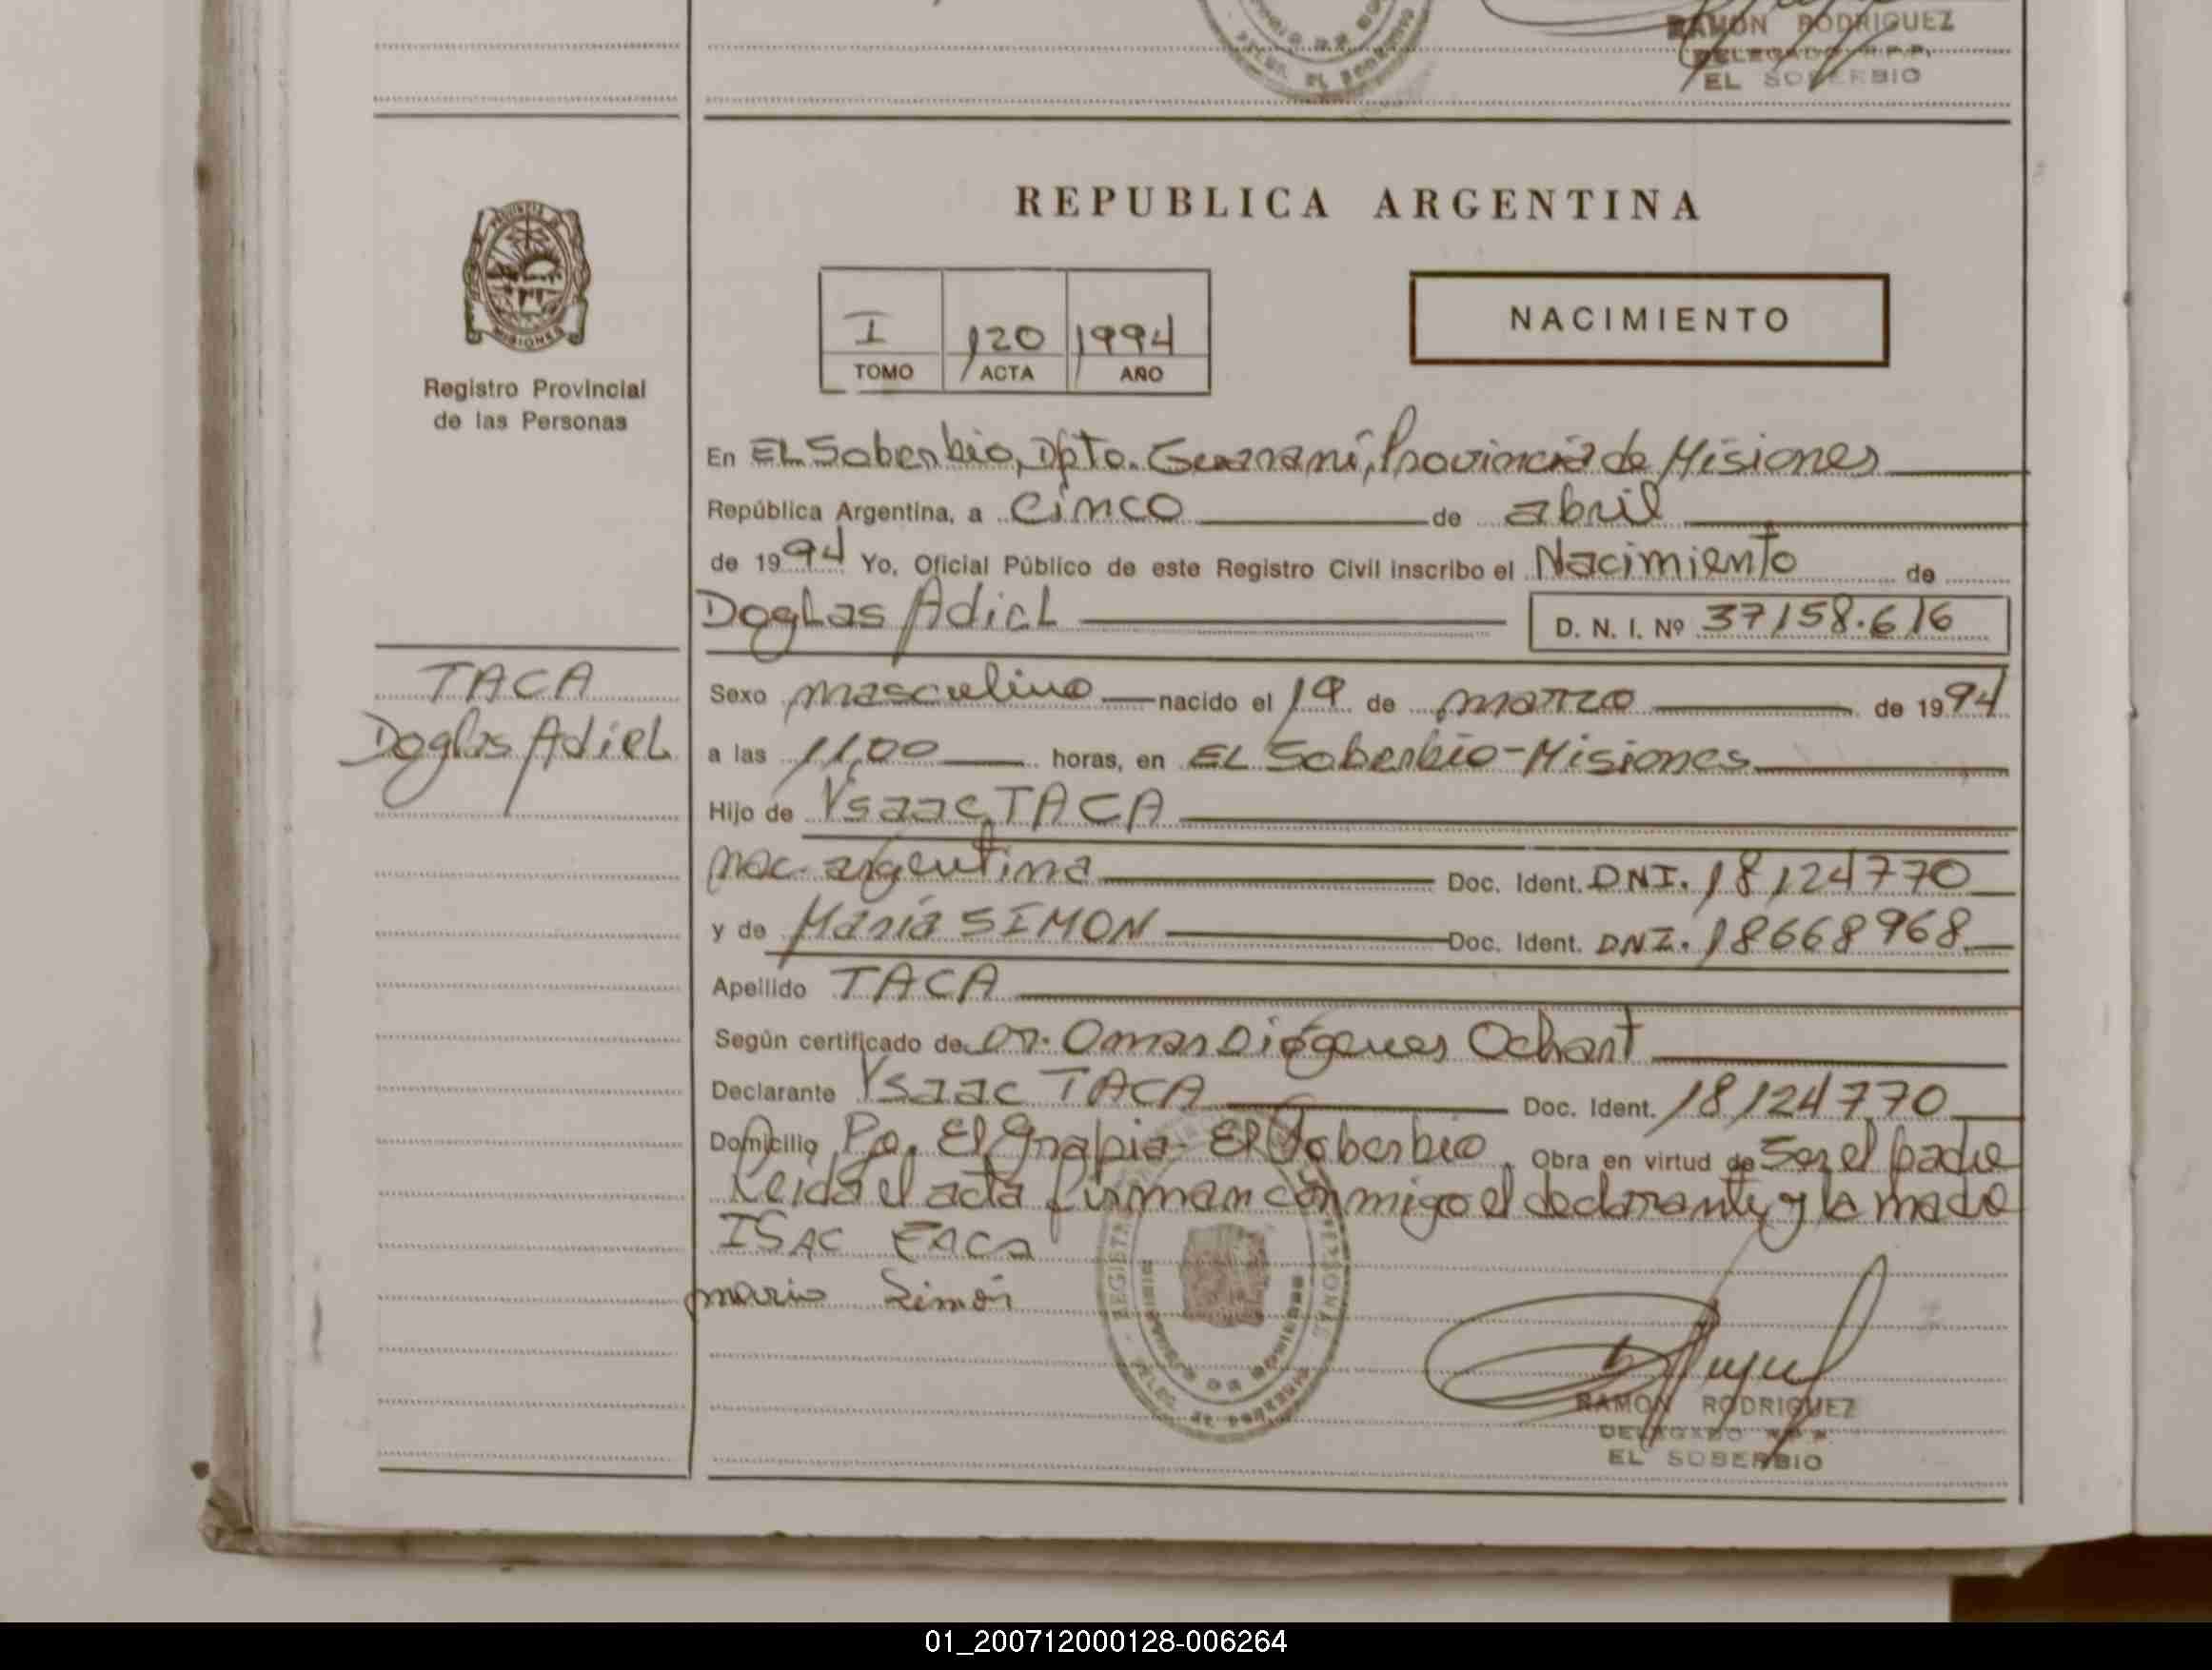 RAMON RODRIGUEZ
DELEGADO R.P.P.
EL SOBERBIO
DELEG. EL SOBERBIO
PROVINCIA DE
MISIONES
Registro Provincial
de las Personas
REPUBLICA ARGENTINA
I 120 1994
TOMO ACTA AÑO
NACIMIENTO
En EL Soberbio, Dpto. Guaraní, Provincia de Misiones
República Argentina, a cinco de abril
de 1994 Yo, Oficial Público de este Registro Civil inscribo el Nacimiento de
Doglas Adiel D. N. I. Nº 37158.616
TACA
Doglas Adiel
Sexo masculino nacido el 19 de marzo de 1994
a las 11,00 horas, en EL Soberbio-Misiones
Hijo de Ysaac TACA
nac. argentina Doc. Ident. DNI. 18124770
y de María SIMON Doc. Ident. DNI. 18668968
Apellido TACA
Según certificado de Dr. Omar Diógenes Ochart
Declarante Ysaac TACA Doc. Ident. 18124770
Domicilio Po. El Grapia- El Soberbio Obra en virtud de Ser el padre
Leida el acta firman conmigo el declarante y la madre
ISAC TACA
maria Simón
REGISTRO PERSONAS
DELEG. EL SOBERBIO
RAMON RODRIGUEZ
DELEGADO R.P.P.
EL SOBERBIO
01_200712000128-006264